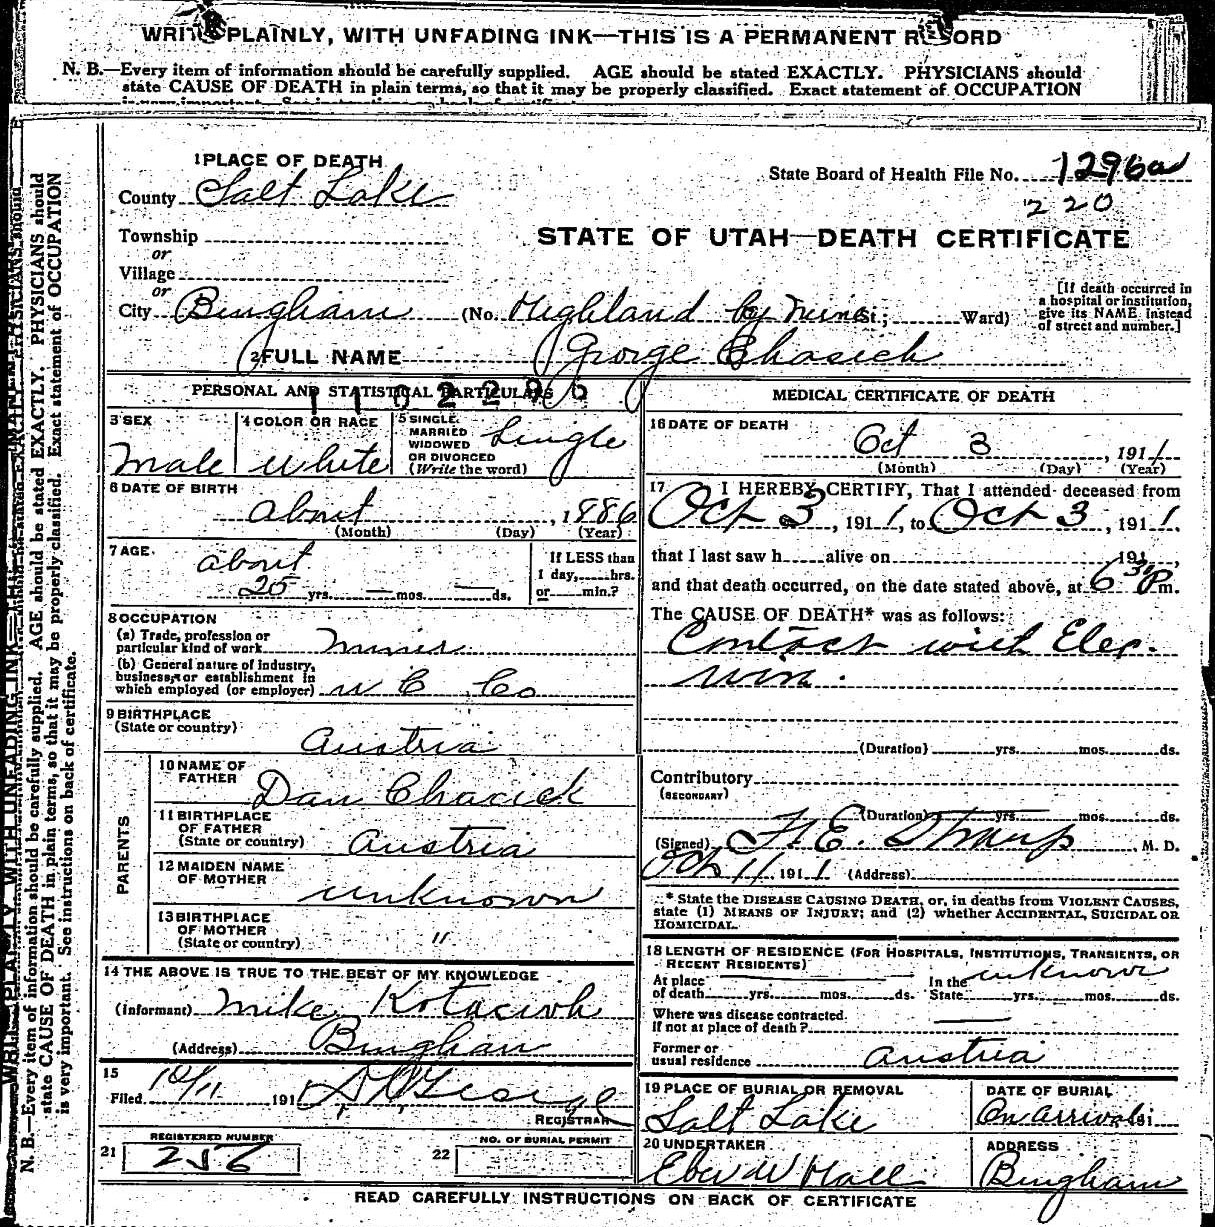 PLAINLY, WITH UNFADING INK—THIS IS A PERMANENT RECORD
N. B.—Every item of information should be carefully supplied. AGE should be stated EXACTLY. PHYSICIANS should
state CAUSE OF DEATH in plain terms, so that it may be properly classified. Exact statement of OCCUPATION
1 PLACE OF DEATH
State Board of Health File No. 1296a
220
County Salt Lake
STATE OF UTAH—DEATH CERTIFICATE
Township
or
Village
or
City Bingham (No. Highland Boy Mine St.; Ward)
[If death occurred in
a hospital or institution,
give its NAME instead
of street and number.]
2 FULL NAME George Chasich
PERSONAL AND STATISTICAL PARTICULARS
1102296
3 SEX
Male
4 COLOR OR RACE
White
5 SINGLE,
MARRIED
WIDOWED
OR DIVORCED
(Write the word)
Single
6 DATE OF BIRTH
about, 1886
(Month) (Day) (Year)
7 AGE
about
25 yrs. — mos. — ds.
If LESS than
1 day, hrs.
or min.?
8 OCCUPATION
(a) Trade, profession or
particular kind of work Miner
(b) General nature of industry,
business, or establishment in
which employed (or employer) U C Co
9 BIRTHPLACE
(State or country)
Austria
PARENTS
10 NAME OF
FATHER
Dan Chacick
11 BIRTHPLACE
OF FATHER
(State or country) Austria
12 MAIDEN NAME
OF MOTHER
unknown
13 BIRTHPLACE
OF MOTHER
(State or country) "
14 THE ABOVE IS TRUE TO THE BEST OF MY KNOWLEDGE
(Informant) Mike
(Address) Bingham
15
Filed 10/11 191
REGISTRAR
REGISTERED NUMBER
21 256
NO. OF BURIAL PERMIT
22
MEDICAL CERTIFICATE OF DEATH
16 DATE OF DEATH
Oct 3, 1911
(Month) (Day) (Year)
17 I HEREBY CERTIFY, That I attended deceased from
Oct 3, 1911, to Oct 3, 1911.
that I last saw h alive on 191 ,
and that death occurred, on the date stated above, at 6 30 P m.
The CAUSE OF DEATH* was as follows:
Contact with Elec.
wire.
(Duration) yrs. mos. ds.
Contributory
(SECONDARY)
(Duration) yrs. mos. ds.
(Signed) F. E. Straup, M. D.
Oct 11, 1911 (Address)
* State the DISEASE CAUSING DEATH, or, in deaths from VIOLENT CAUSES,
state (1) MEANS OF INJURY; and (2) whether ACCIDENTAL, SUICIDAL OR
HOMICIDAL.
18 LENGTH OF RESIDENCE (FOR HOSPITALS, INSTITUTIONS, TRANSIENTS, OR
RECENT RESIDENTS)
At place
of death yrs. mos. ds.
In the
State yrs. mos. ds.
unknown
Where was disease contracted.
If not at place of death?
Former or
usual residence Austria
19 PLACE OF BURIAL OR REMOVAL
Salt Lake
DATE OF BURIAL
On arrival 191
20 UNDERTAKER
Eber W Hall
ADDRESS
Bingham
READ CAREFULLY INSTRUCTIONS ON BACK OF CERTIFICATE
N. B.—Every item of information should be carefully supplied. AGE should be stated EXACTLY. PHYSICIANS should
state CAUSE OF DEATH in plain terms, so that it may be properly classified. Exact statement of OCCUPATION
is very important. See instructions on back of certificate.